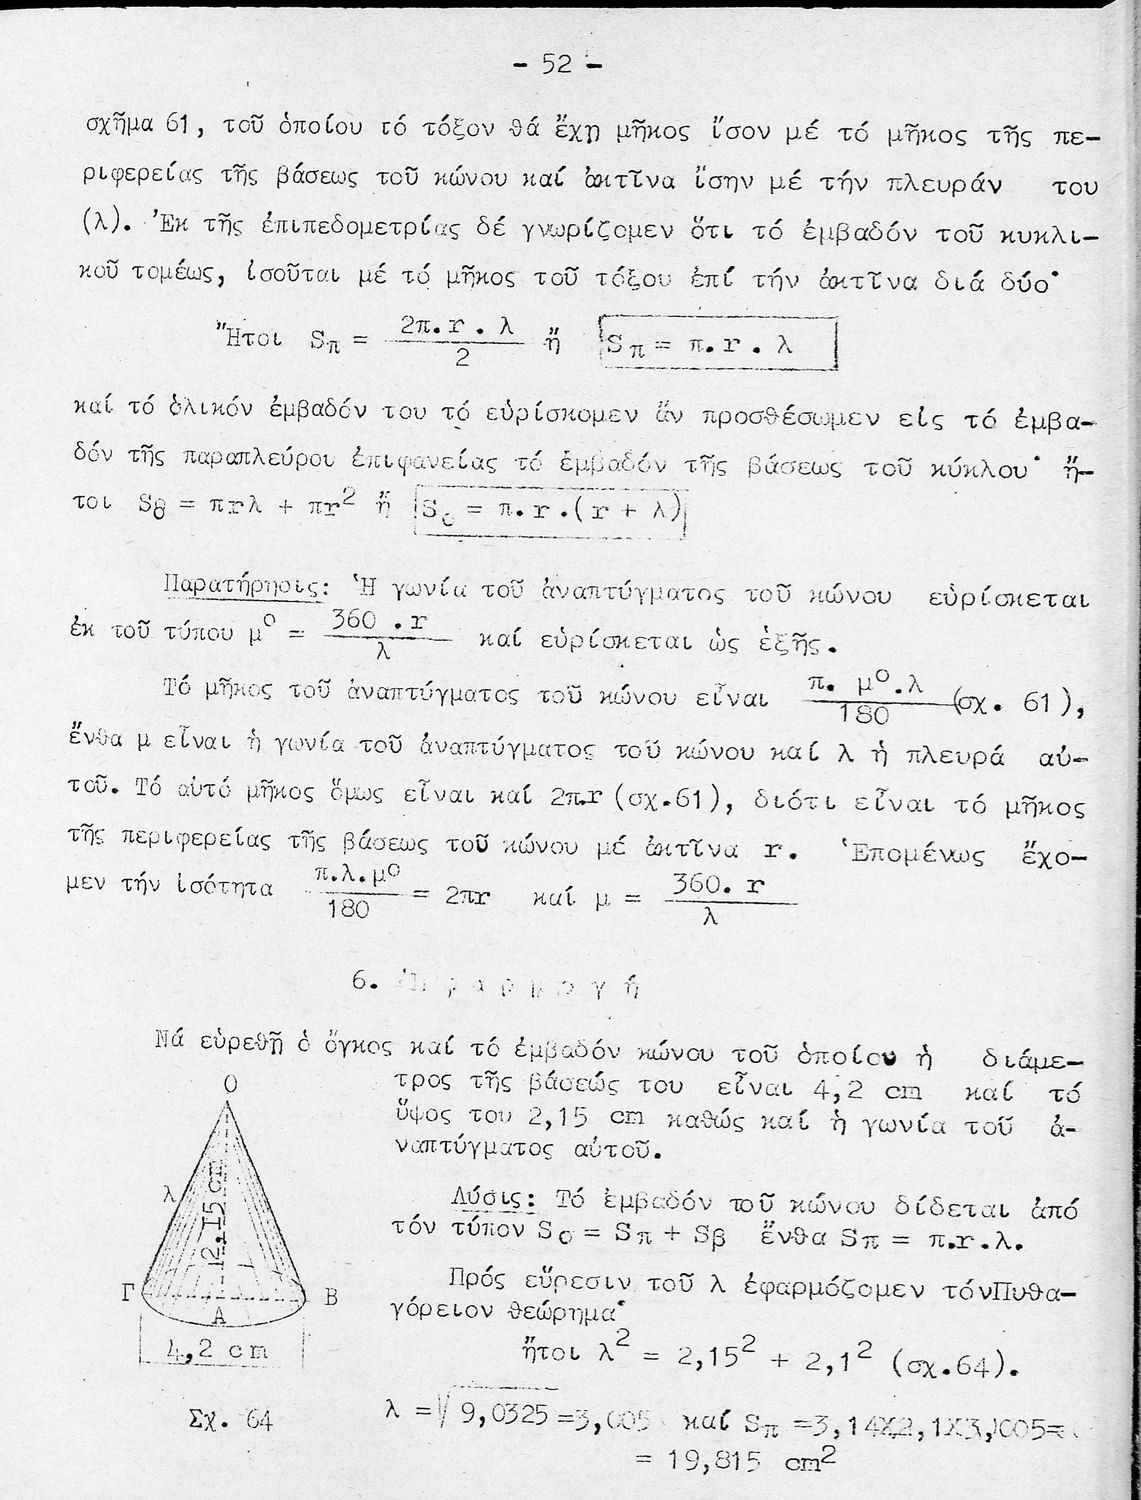 - 52 -
σχῆμα 61, τοῦ ὁποίου τό τόξον θά ἔχῃ μῆκος ἴσον μέ τό μῆκος τῆς πε-
ριφερείας τῆς βάσεως τοῦ κώνου καί ἀκτῖνα ἴσην μέ τήν πλευράν του
(λ). Ἐκ τῆς ἐπιπεδομετρίας δέ γνωρίζομεν ὅτι τό ἐμβαδόν τοῦ κυκλι-
κοῦ τομέως, ἰσοῦται μέ τό μῆκος τοῦ τόξου ἐπί τήν ἀκτῖνα διά δύο·
Ἤτοι Sπ = 2π.r . λ / 2 ἤ Sπ = π.r . λ
καί τό ὁλικόν ἐμβαδόν του τό εὑρίσκομεν ἄν προσθέσωμεν εἰς τό ἐμβα-
δόν τῆς παραπλεύρου ἐπιφανείας τό ἐμβαδόν τῆς βάσεως τοῦ κύκλου· ἤ-
τοι So = πrλ + πr² ἤ So = π.r .(r + λ)
Παρατήρησις: Ἡ γωνία τοῦ ἀναπτύγματος τοῦ κώνου εὑρίσκεται
ἐκ τοῦ τύπου μº = 360 .r / λ καί εὑρίσκεται ὡς ἑξῆς.
Τό μῆκος τοῦ ἀναπτύγματος τοῦ κώνου εἶναι π. μº.λ / 180 (σχ. 61),
ἔνθα μ εἶναι ἡ γωνία τοῦ ἀναπτύγματος τοῦ κώνου καί λ ἡ πλευρά αὐ-
τοῦ. Τό αὐτό μῆκος ὅμως εἶναι καί 2π.r (σχ.61), διότι εἶναι τό μῆκος
τῆς περιφερείας τῆς βάσεως τοῦ κώνου μέ ἀκτῖνα r. Ἑπομένως ἔχο-
μεν τήν ἰσότητα π.λ.μº / 180 = 2πr καί μ = 360. r / λ
6. Ἐφαρμογή
Νά εὑρεθῇ ὁ ὄγκος καί τό ἐμβαδόν κώνου τοῦ ὁποίου ἡ διάμε-
τρος τῆς βάσεώς του εἶναι 4,2 cm καί τό
ὕψος του 2,15 cm καθώς καί ἡ γωνία τοῦ ἀ-
ναπτύγματος αὐτοῦ.
Λύσις: Τό ἐμβαδόν τοῦ κώνου δίδεται ἀπό
τόν τύπον So = Sπ + Sβ ἔνθα Sπ = π.r.λ.
Πρός εὕρεσιν τοῦ λ ἐφαρμόζομεν τόνΠυθα-
γόρειον θεώρημα·
ἤτοι λ² = 2,15² + 2,1² (σχ.64).
λ =√9,0325 =3,005 καί Sπ =3,14X2,1X3,005=
= 19,815 cm²
O
λ
2,15 cm
Γ
A
B
4,2 cm
Σχ. 64